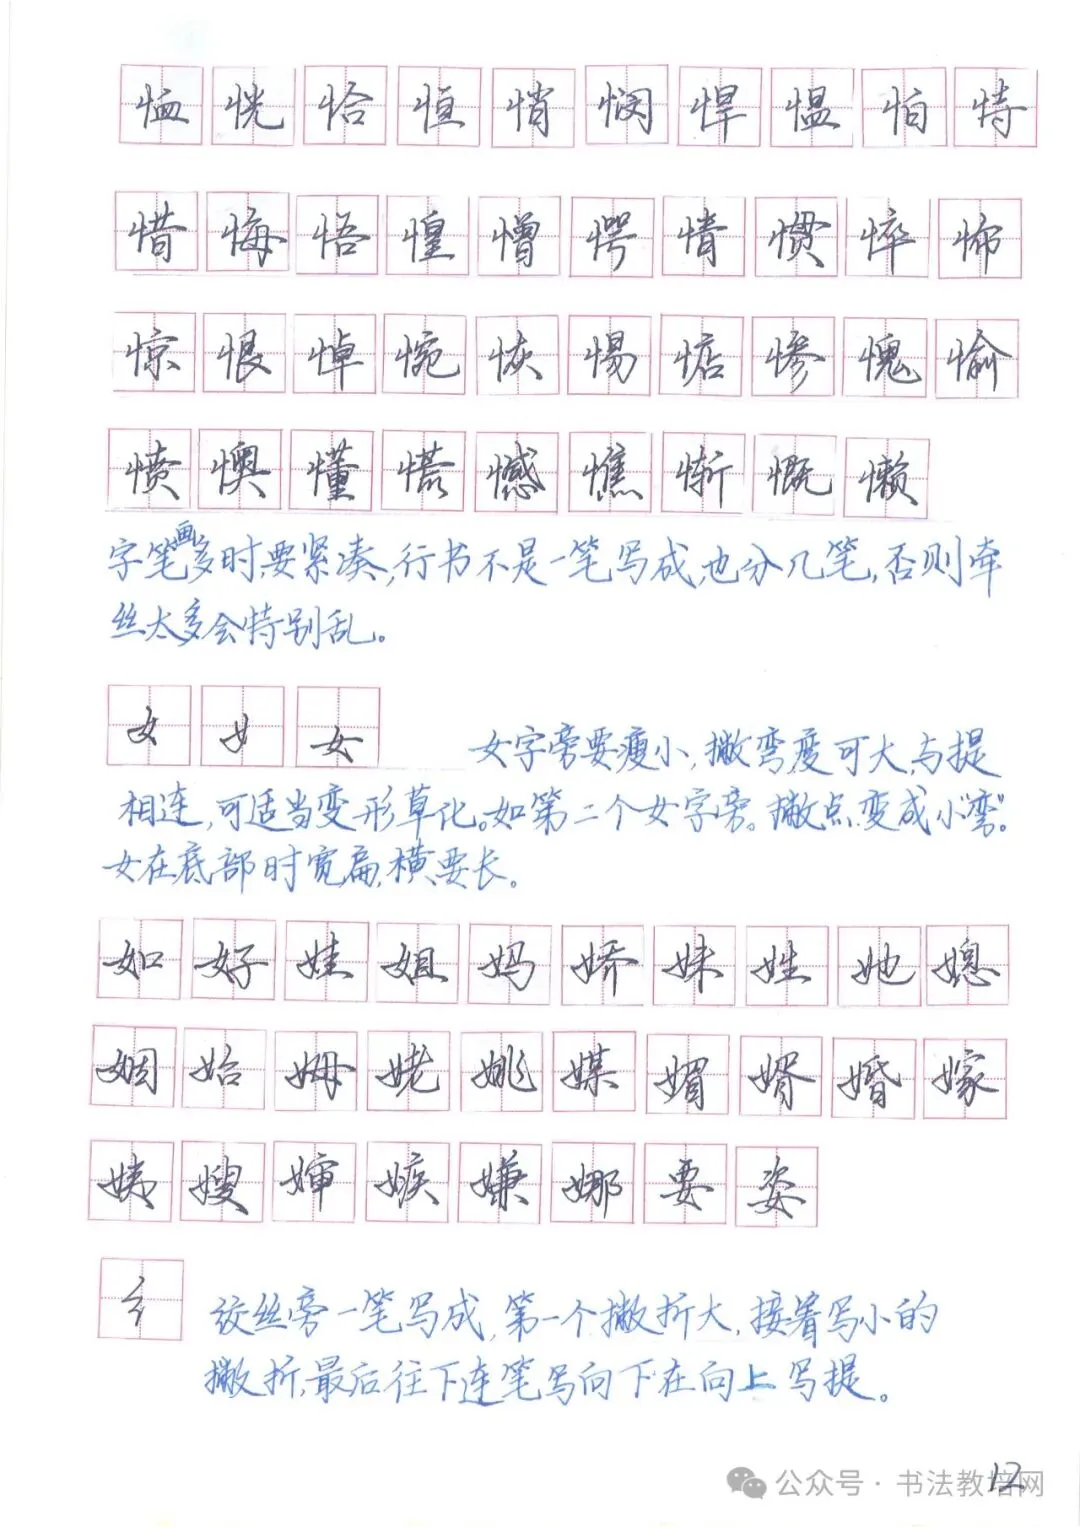 恤恍恰恒悄悯悍愠怕恃
惜悔悟惶憎愕情惯悴怖
惊恨悼惋恢惕惦惨愧愉
愤懊懂慌憾憔惭慨懒
字笔画多时,要紧凑,行书不是一笔写成,也分几笔,否则牵
丝太多会特别乱。
女女女
女字旁要瘦小,撇弯度可大,与提
相连,可适当变形草化。如第二个女字旁。撇点变成小"弯"。
女在底部时宽扁,横要长。
如好娃姐妈娇妹姓她媳
姻始姆姥姚媒媚婿婚嫁
姨嫂婶嫉嫌娜要姿
纟
绞丝旁一笔写成,第一个撇折大,接着写小的
撇折,最后往下连笔写向下在向上写提。
公众号·书法教培网
12